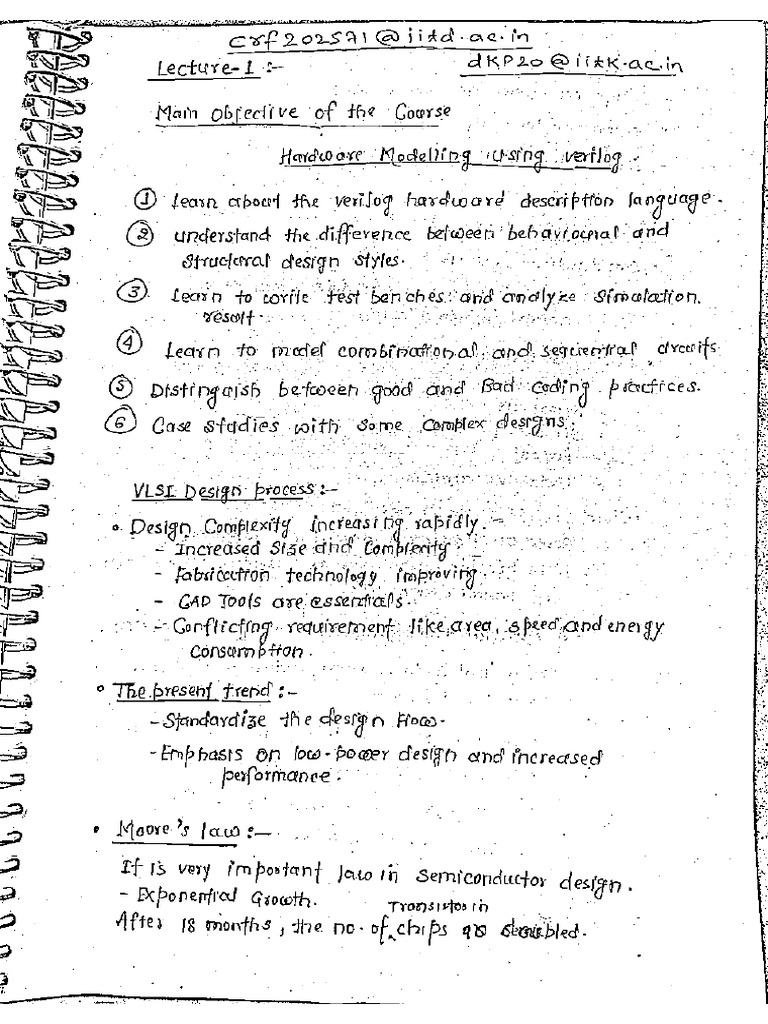 crf202571@iitd.ac.in
Lecture-1:-
dkp20@iitk.ac.in
Main Objective of the Course
Hardware Modelling using verilog.
① Learn about the verilog hardware description language.
② understand the difference between behavioural and
structural design styles.
③ Learn to write test benches and analyze simulation
result.
④ Learn to model combinational and sequential circuits
⑤ Distinguish between good and Bad coding practices.
⑥ Case studies with some complex designs.
VLSI Design process:-
• Design Complexity increasing rapidly.
- Increased Size and Complexity
- Fabrication technology improving
- CAD Tools are essentials.
- Conflicting requirement like area, speed and energy
consumption.
• The present trend:-
- Standardize the design flow.
- Emphasis on low-power design and increased
performance.
• Moore's law:-
It is very important law in semiconductor design.
- Exponential Growth.
Transistor in
After 18 months, the no. of chips